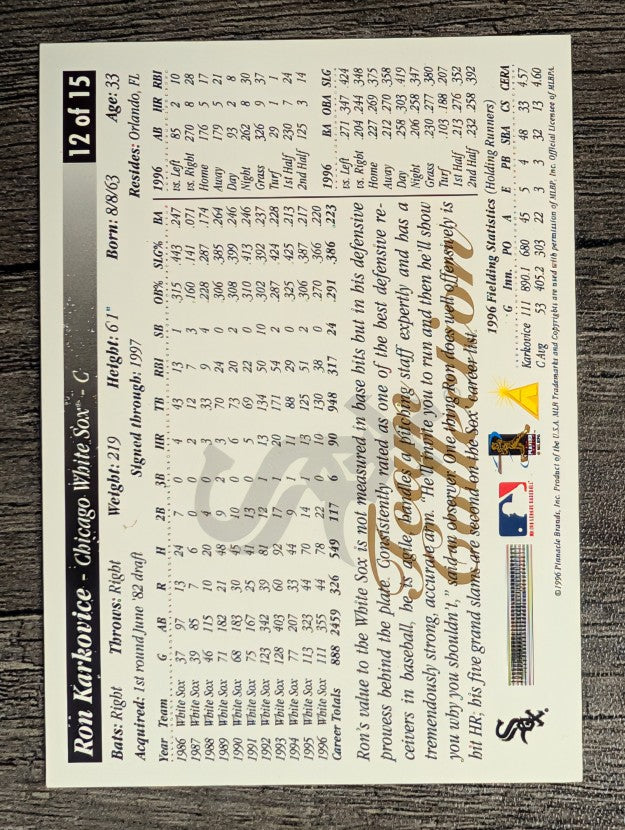 Ron Karkovice - Chicago White Sox™ - C
12 of 15
Bats: Right Throws: Right Weight: 219 Height: 6'1" Born: 8/8/63 Age: 33
Acquired: 1st round June '82 draft Signed through: 1997 Resides: Orlando, FL
Year Team G AB R H 2B 3B HR TB RBI SB OB% SLG% BA
1986 White Sox 37 97 13 24 7 0 4 43 13 1 .315 .443 .247
1987 White Sox 39 85 7 6 0 0 2 12 7 3 .160 .141 .071
1988 White Sox 46 115 10 20 4 0 3 33 9 4 .228 .287 .174
1989 White Sox 71 182 21 48 9 2 3 70 24 0 .306 .385 .264
1990 White Sox 68 183 30 45 10 0 6 73 20 2 .308 .399 .246
1991 White Sox 75 167 25 41 13 0 5 69 22 0 .310 .413 .246
1992 White Sox 123 342 39 81 12 1 13 134 50 10 .302 .392 .237
1993 White Sox 128 403 60 92 17 1 20 171 54 2 .287 .424 .228
1994 White Sox 77 207 33 44 9 1 11 88 29 0 .325 .425 .213
1995 White Sox 113 323 44 70 14 1 13 125 51 2 .306 .387 .217
1996 White Sox 111 355 44 78 22 0 10 130 38 0 .270 .366 .220
Career Totals 888 2459 326 549 117 6 90 948 317 24 .291 .386 .223
1996 AB HR RBI
vs. Left 85 2 10
vs. Right 270 8 28
Home 176 5 17
Away 179 5 21
Day 93 2 8
Night 262 8 30
Grass 326 9 37
Turf 29 1 1
1st Half 230 7 24
2nd Half 125 3 14
1996 BA OBA SLG
vs. Left .271 .347 .424
vs. Right .204 .244 .348
Home .227 .269 .375
Away .212 .270 .358
Day .258 .303 .419
Night .206 .258 .347
Grass .230 .277 .380
Turf .103 .188 .207
1st Half .213 .276 .352
2nd Half .232 .258 .392
Ron's value to the White Sox is not measured in base hits but in his defensive
prowess behind the plate. Consistently rated as one of the best defensive re-
ceivers in baseball, he is agile, handles a pitching staff expertly and has a
tremendously strong, accurate arm. "He'll invite you to run and then he'll show
you why you shouldn't," said an observer. One thing Ron does well offensively is
hit HR; his five grand slams are second on the Sox' career list.
Team Pinnacle
1996 Fielding Statistics (Holding Runners)
G Inn. PO A E PB SBA CS CERA
Karkovice 111 890.1 680 45 5 4 48 33 4.57
C Avg 53 405.2 303 22 3 3 32 13 4.60
Sox
MAJOR LEAGUE BASEBALL
© 1996 Pinnacle Brands, Inc. Product of the U.S.A. MLB Trademarks and Copyrights are used with permission of MLBP, Inc. Official Licensee of MLBPA.